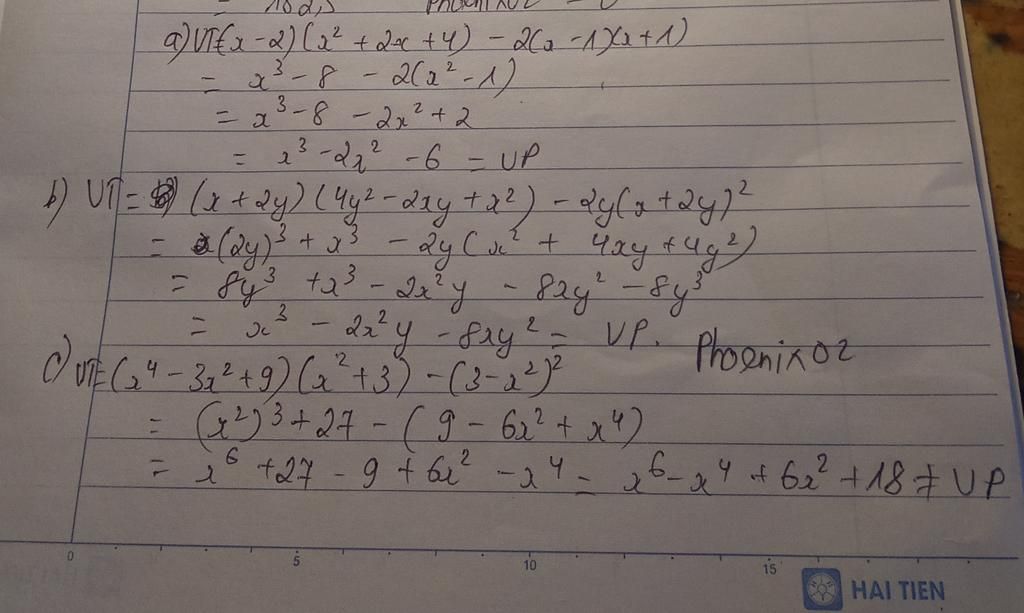 = 182,5 Phoenix02 = 0
a) VT=(x-2)(x² + 2x +4) - 2(x -1)(x+1)
= x³ - 8 - 2(x² - 1)
= x³ - 8 - 2x² + 2
= x³ - 2x² - 6 = VP
b) VT = (x + 2y)(4y² - 2xy + x²) - 2y(x + 2y)²
= (2y)³ + x³ - 2y(x² + 4xy + 4y²)
= 8y³ + x³ - 2x²y - 8xy² - 8y³
= x³ - 2x²y - 8xy² = VP. Phoenix02
c) VT=(x⁴ - 3x² + 9)(x² + 3) - (3 - x²)²
= (x²)³ + 27 - (9 - 6x² + x⁴)
= x⁶ + 27 - 9 + 6x² - x⁴ = x⁶ - x⁴ + 6x² + 18 ≠ VP
0 5 10 15
HAI TIEN